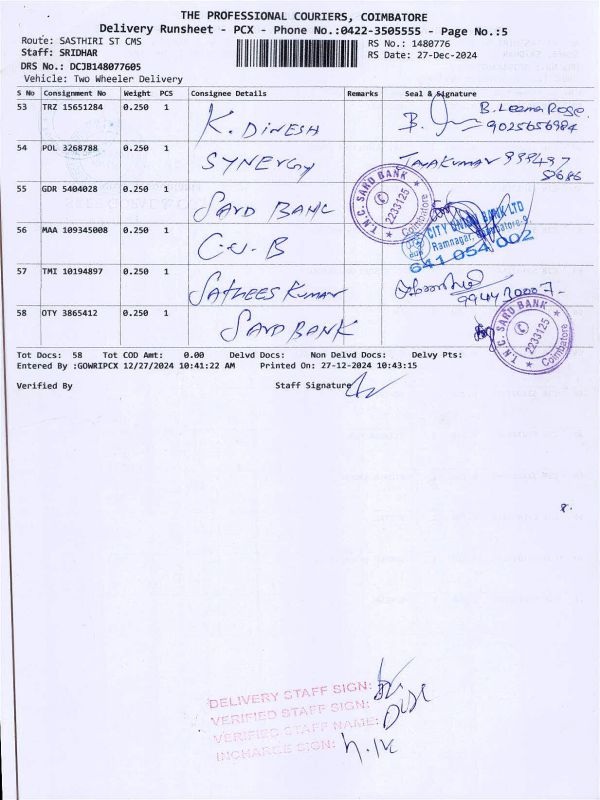 THE PROFESSIONAL COURIERS, COIMBATORE
Delivery Runsheet - PCX - Phone No.:0422-3505555 - Page No.:5
Route: SASTHIRI ST CMS
RS No.: 1480776
Staff: SRIDHAR
RS Date: 27-Dec-2024
DRS No.: DCJB148077605
Vehicle: Two Wheeler Delivery
S No Consignment No Weight PCS Consignee Details Remarks Seal & Signature
53 TRZ 15651284 0.250 1 K. DINESH B. Leema Rose
9025656984
54 POL 3268788 0.250 1 SYNERGY JAYAKUMAR
55 GDR 5404028 0.250 1 SARD BANK
T.N.C. SARD BANK 2233125 Coimbatore
56 MAA 109345008 0.250 1 C.U.B
CITY UNION BANK LTD
Ramnagar, Coimbatore-9
641 054 002
57 TMI 10194897 0.250 1 SATHEES KUMAR
58 OTY 3865412 0.250 1 SARD BANK
T.N.C. SARD BANK 2233125 Coimbatore
Tot Docs: 58 Tot COD Amt: 0.00 Delvd Docs: Non Delvd Docs: Delvy Pts:
Entered By :GOWRIPCX 12/27/2024 10:41:22 AM Printed On: 27-12-2024 10:43:15
Verified By Staff Signature
8.
DELIVERY STAFF SIGN:
VERIFIED STAFF SIGN:
VERIFIED STAFF NAME:
INCHARGE SIGN: